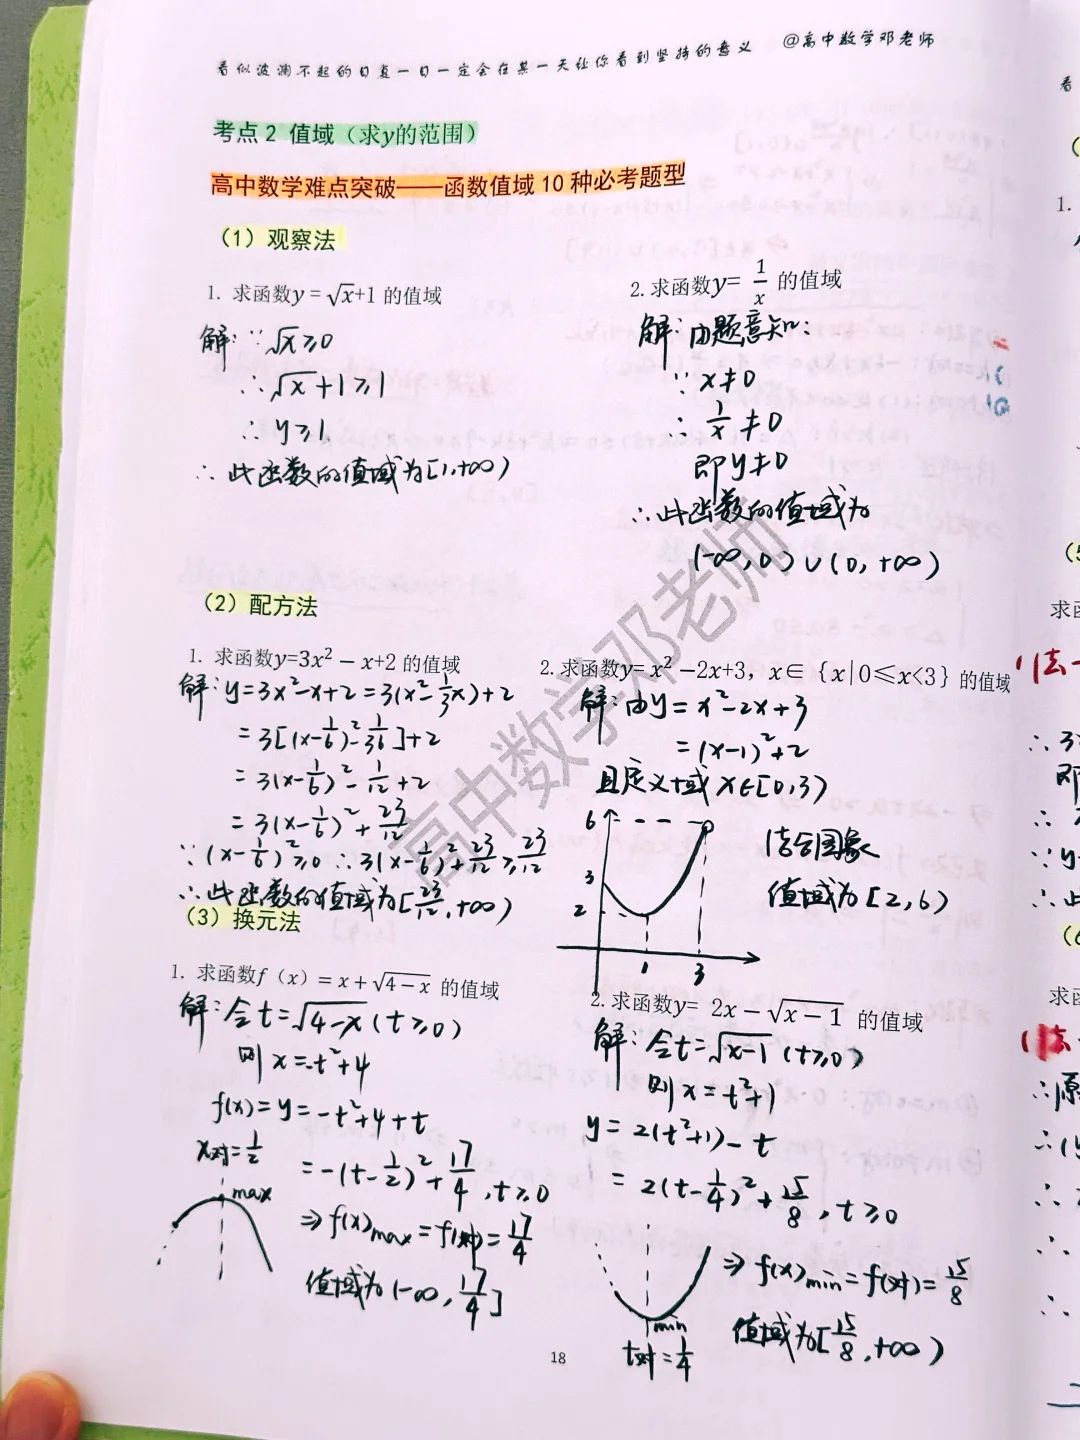 看似波澜不起的日复一日一定会在某一天让你看到坚持的意义 @高中数学邓老师
考点2 值域（求y的范围）
高中数学难点突破——函数值域10种必考题型
（1）观察法
1. 求函数y=√x+1的值域
解:∵√x≥0
∴√x+1≥1
∴y≥1
∴此函数的值域为[1,+∞)
2.求函数y=1/x的值域
解:由题意知:
∵x≠0
∴1/x≠0
即y≠0
∴此函数的值域为
(-∞,0)∪(0,+∞)
（2）配方法
1. 求函数y=3x²−x+2的值域
解:y=3x²-x+2=3(x²-1/3x)+2
=3[(x-1/6)²-1/36]+2
=3(x-1/6)²-1/12+2
=3(x-1/6)²+23/12
∵(x-1/6)²≥0 ∴3(x-1/6)²+23/12≥23/12
∴此函数的值域为[23/12,+∞)
2.求函数y=x²−2x+3，x∈{x|0≤x<3}的值域
解:由y=x²-2x+3
=(x-1)²+2
且定义域x∈[0,3)
6
3
2
1 3
结合图象
值域为[2,6)
（3）换元法
1. 求函数f（x）=x+√4−x的值域
解:令t=√4-x(t≥0)
则x=-t²+4
f(x)=y=-t²+4+t
=-(t-1/2)²+17/4,t≥0
x对=1/2
max
⇒f(x)max=f(对)=17/4
值域为(-∞,17/4]
2.求函数y=2x−√x−1的值域
解:令t=√x-1(t≥0)
则x=t²+1
y=2(t²+1)-t
=2(t-1/4)²+15/8,t≥0
min
t对=1/4
⇒f(x)min=f(对)=15/8
值域为[15/8,+∞)
18
高中数学邓老师